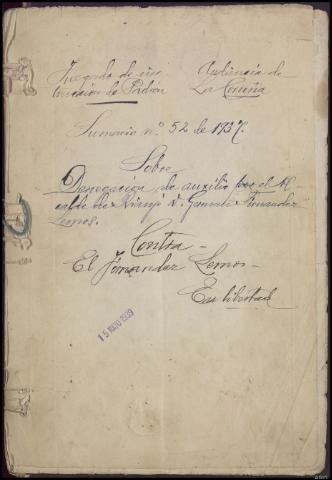 Juzgado de ins Audiencia de
trucción de Padrón La Coruña
Sumario nº 52 de 1937.
Sobre
Denegación de auxilio por el Al
calde de D. Fernandez
Lemos.
Contra
El Fernandez Lemos
En libertad
15 1939